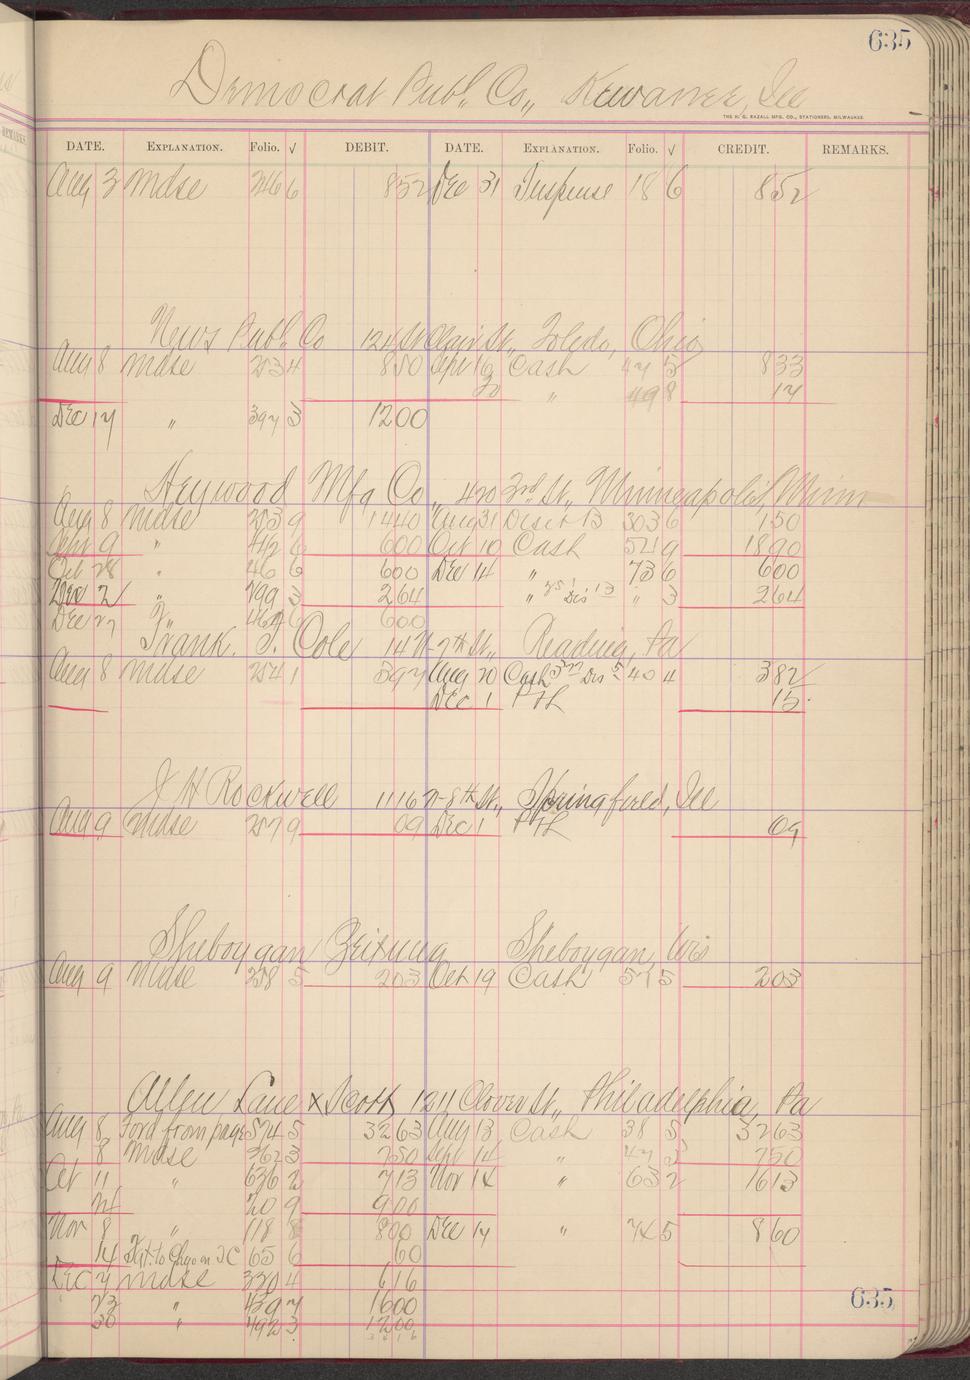 635
Democrat Publ. Co., Kewanee, Ill
THE H. G. RAZALL MFG. CO., STATIONERS, MILWAUKEE.
DATE. EXPLANATION. Folio. √ DEBIT. DATE. EXPLANATION. Folio. √ CREDIT. REMARKS.
Aug 3 Mdse 346 6 852 Dec 31 Suspense 18 6 852
News Publ. Co 124 St Clair St., Toledo, Ohio
Aug 8 Mdse 253 4 850 Sept 16 Cash 47 5 833
20 " 498 17
Dec 17 " 397 3 1200
Heywood Mfg Co., 420 3rd St., Minneapolis, Minn
Aug 8 Mdse 253 9 1440 Aug 31 Disct B 303 6 150
Sept 9 " 42 6 600 Oct 10 Cash 521 9 1890
Oct 28 " 46 6 600 Dec 14 " 73 6 600
Dec 2 " 199 3 264 " Dis " 3 264
Dec 27 " 464 6 600
Frank. S. Cole 14 N-7th St., Reading, Pa
Aug 8 Mdse 254 1 397 Aug 20 Cash Dis 40 4 382
Dec 1 P&L 15
J H Rockwell 1116 N-8th St., Springfield, Ill
Aug 9 Mdse 257 9 09 Dec 1 P&L 09
Sheboygan Zeitung Sheboygan, Wis
Aug 9 Mdse 258 5 203 Oct 19 Cash 57 5 203
Allen Lane & Scott 1211 Clover St., Philadelphia, Pa
Aug 8 Ford from page 574 5 3263 Aug 13 Cash 38 5 3263
8 Mdse 362 3 750 Sept 14 " 47 5 750
Oct 11 " 636 2 713 Nov 14 " 63 2 1613
24 20 9 900
Nov 8 " 118 8 800 Dec 14 " 74 5 860
14 to Chgo on I C 65 6 60
Dec 7 Mdse 330 4 616
23 " 439 7 1600
30 " 492 3 1200
635